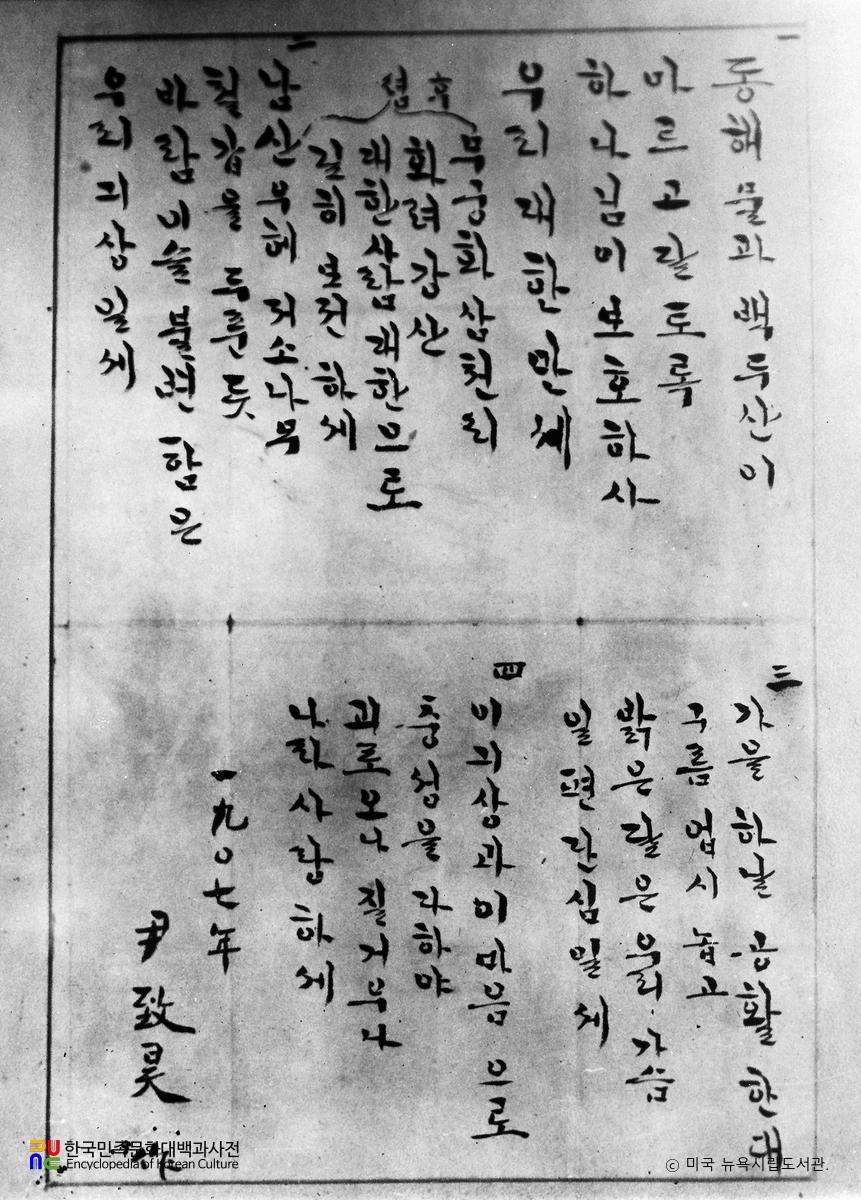 一
동해물과 백두산이
마르고 달토록
하나님이 보호하사
우리 대한 만세
후렴
무궁화 삼천리
화려강산
대한사람 대한으로
길히 보전하세
二
남산우헤 저소나무
철갑을 두룬 듯
바람이슬 불변함은
우리 긔상일세
三
가을 하날 공활한대
구름 업시 놉고
밝은 달은 우리 가슴
일편단심일세
四
이긔상과 이마음으로
충성을 다하야
괴로오나 질거우나
나라사랑하세
一九〇七年
尹致昊 作
한국민족문화대백과사전
Encyclopedia of Korean Culture
ⓒ 미국 뉴욕시립도서관.